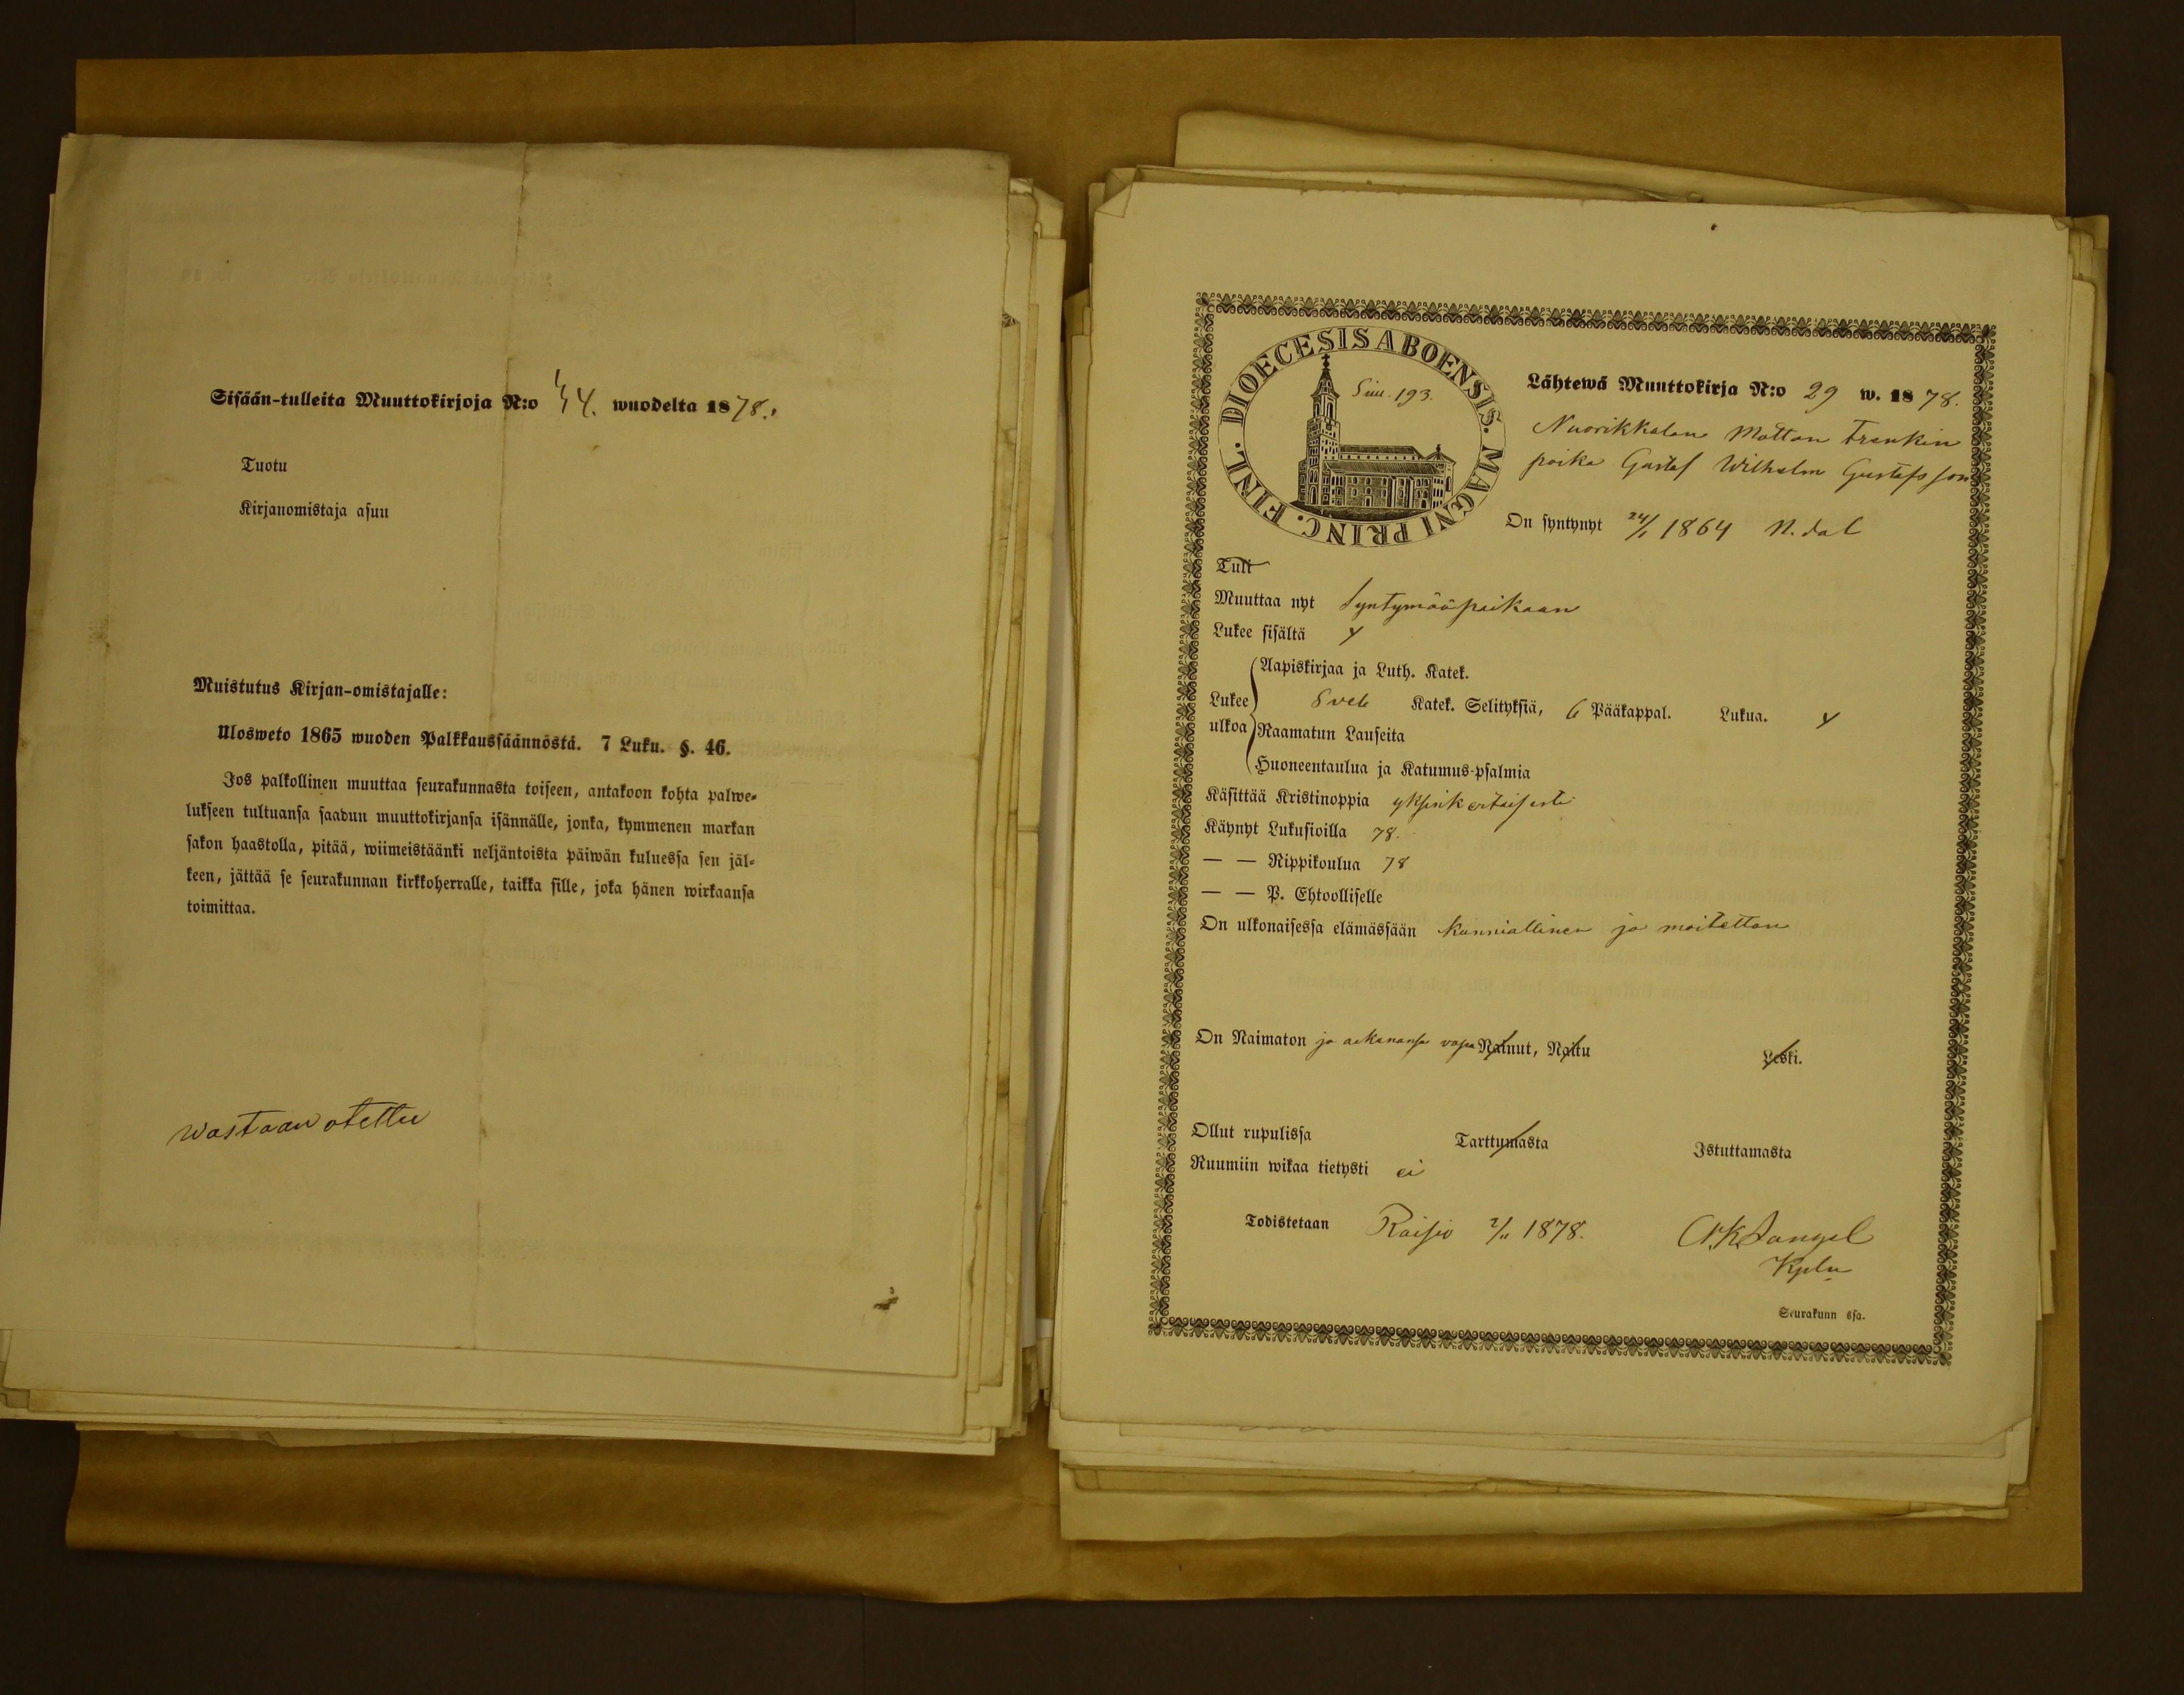 Sisään-tulleita Muuttokirjoja N:o 54. wuodelta 1878.
Tuotu
Kirjanomistaja asuu
Muistutus Kirjan-omistajalle:
Ulosweto 1865 wuoden Palkkaussäännöstä. 7 Luku. §. 46.
Jos palkollinen muuttaa seurakunnasta toiseen, antakoon kohta palwe-
lukseen tultuansa saadun muuttokirjansa isännälle, jonka, kymmenen markan
sakon haastolla, pitää, wiimeistäänki neljäntoista päiwän kuluessa sen jäl-
keen, jättää se seurakunnan kirkkoherralle, taikka sille, joka hänen wirkaansa
toimittaa.
wastaan otettu
DIOECESIS ABOENSIS. MAGNI PRINC. FINL.
Siw. 193.
Lähtewä Muuttokirja N:o 29 w. 1878.
Nuorikkalan Mattan Frenkin
poika Gustaf Wilhelm Gustafsson
On syntynyt 24/1 1864 N.dal
Tuli
Muuttaa nyt Syntymääpaikaan
Lukee sisältä
Aapiskirjaa ja Luth. Katek.
Lukee Sveb Katek. Selityksiä, 6 Pääkappal. Lukua.
ulkoa Raamatun Lauseita
Huoneentaulua ja Katumus-psalmia
Käsittää Kristinoppia yksinkertaisesti
Käynyt Lukusioilla 78.
— — Rippikoulua 78
— — P. Ehtoolliselle
On ulkonaisessa elämässään kunniallinen ja moitetton
On Naimaton ja Nainut, Naitu Leski.
Ollut rupulissa Tarttumasta Istuttamasta
Ruumiin wikaa tietysti ei
Todistetaan Raisio 2/11 1878.
Kpln
Seurakunn ssa.